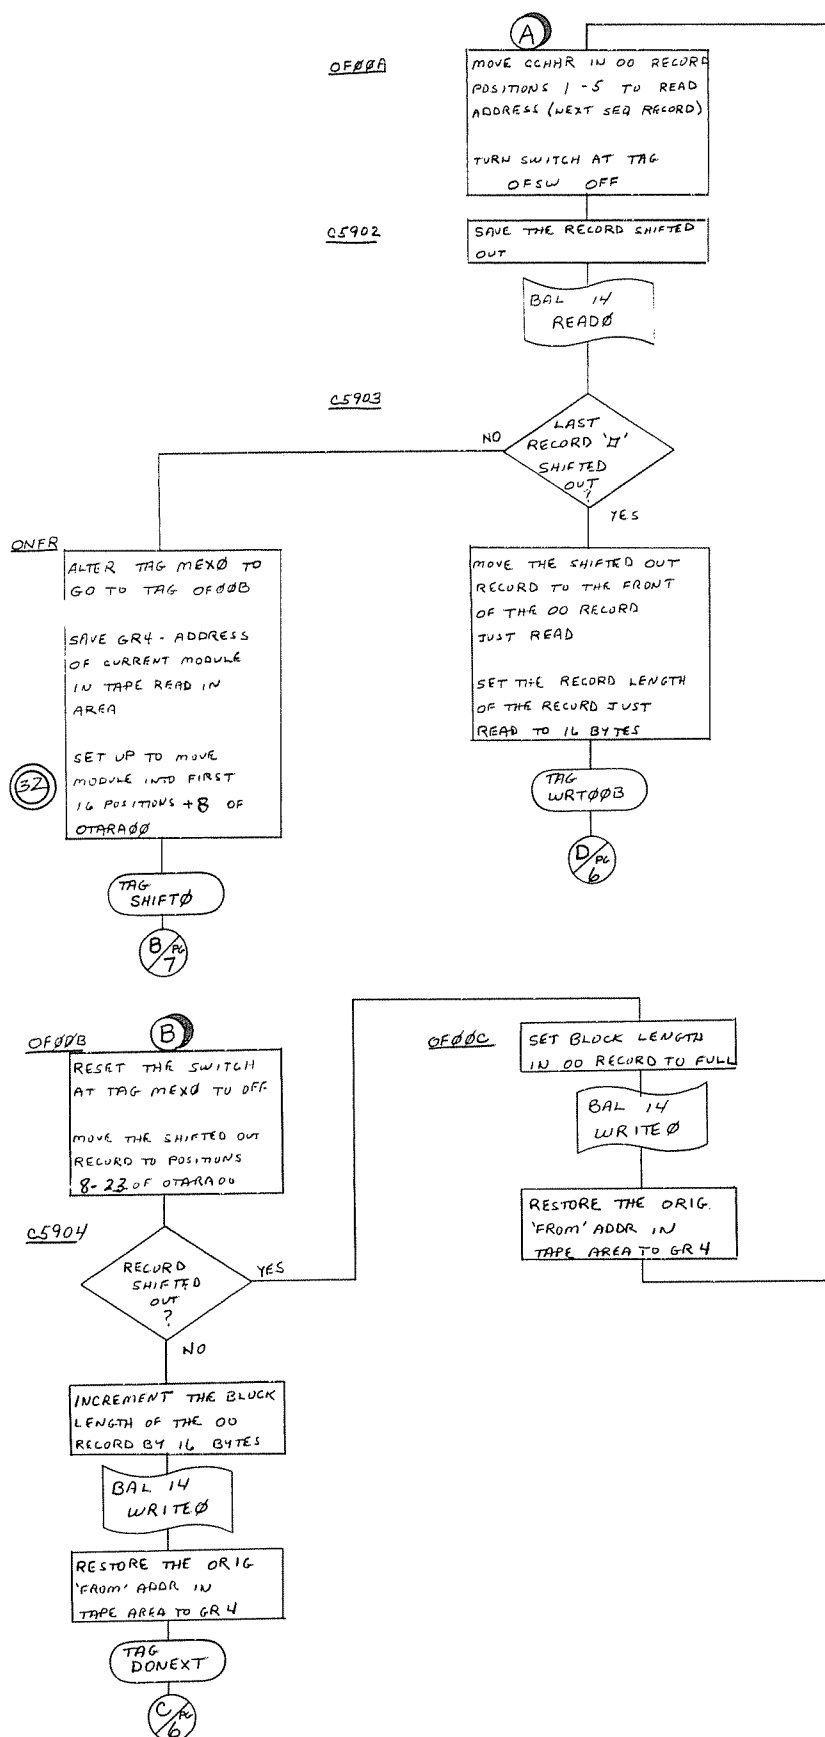 A
OFØØA
MOVE CCHHR IN 00 RECORD
POSITIONS 1-5 TO READ
ADDRESS (NEXT SEQ RECORD)
TURN SWITCH AT TAG
OFSW OFF
C5902
SAVE THE RECORD SHIFTED
OUT
BAL 14
READØ
C5903
LAST
RECORD '¤'
SHIFTED
OUT
?
NO
YES
ONFR
ALTER TAG MEXØ TO
GO TO TAG OFØØB
SAVE GR4 - ADDRESS
OF CURRENT MODULE
IN TAPE READ IN
AREA
SET UP TO MOVE
MODULE INTO FIRST
16 POSITIONS +8 OF
OTARAØØ
32
TAG
SHIFTØ
B/PG
7
MOVE THE SHIFTED OUT
RECORD TO THE FRONT
OF THE 00 RECORD
JUST READ
SET THE RECORD LENGTH
OF THE RECORD JUST
READ TO 16 BYTES
TAG
WRTØØB
D/PG
6
B
OFØØB
RESET THE SWITCH
AT TAG MEXØ TO OFF
MOVE THE SHIFTED OUT
RECORD TO POSITIONS
8-23 OF OTARA00
C5904
RECORD
SHIFTED
OUT
?
YES
NO
INCREMENT THE BLOCK
LENGTH OF THE 00
RECORD BY 16 BYTES
BAL 14
WRITEØ
RESTORE THE ORIG
'FROM' ADDR IN
TAPE AREA TO GR4
TAG
DONEXT
C/PG
6
OFØØC
SET BLOCK LENGTH
IN 00 RECORD TO FULL
BAL 14
WRITEØ
RESTORE THE ORIG.
'FROM' ADDR IN
TAPE AREA TO GR4